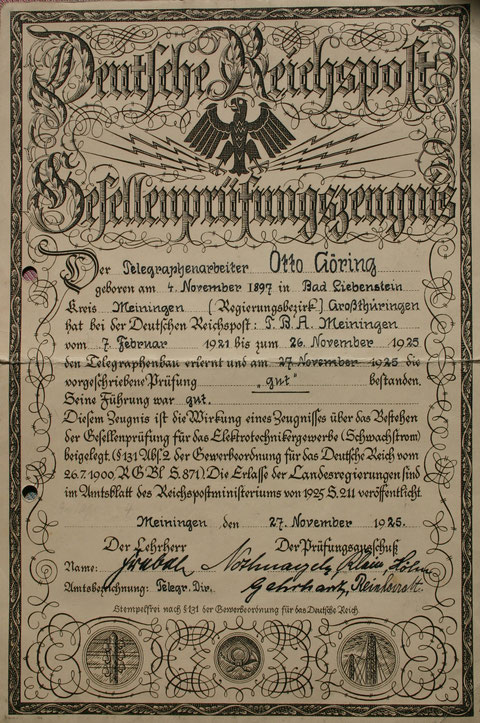 Deutsche Reichspost
Gesellenprüfungszeugnis
Der Telegraphenarbeiter Otto Göring
geboren am 4. November 1897 in Bad Liebenstein
Kreis Meiningen (Regierungsbezirk) Großthüringen
hat bei der Deutschen Reichspost: T.B.A. Meiningen
vom 7. Februar 1921 bis zum 26. November 1925
den Telegraphenbau erlernt und am 27. November 1925 die
vorgeschriebene Prüfung „gut“ bestanden.
Seine Führung war gut.
Diesem Zeugnis ist die Wirkung eines Zeugnisses über das Bestehen
der Gesellenprüfung für das Elektrotechnikergewerbe (Schwachstrom)
beigelegt. (§ 131 Abs. 2 der Gewerbeordnung für das Deutsche Reich vom
26.7.1900. RGBl S. 871.) Die Erlasse der Landesregierungen sind
im Amtsblatt des Reichspostministeriums von 1925 S. 211 veröffentlicht
Meiningen den 27. November 1925.
Der Lehrherr Der Prüfungsausschuß
Name:
Amtsbezeichnung: Telegr. Dir.
Stempelfrei nach § 131 der Gewerbeordnung für das Deutsche Reich.